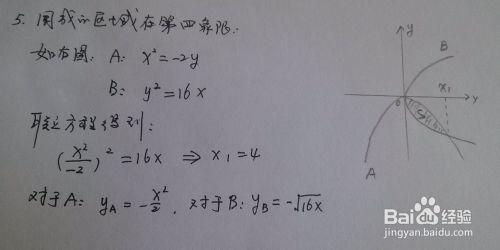 5. 围成的区域在第四象限:
如右图: A: x² = -2y
B: y² = 16x
联立方程得到:
(x²/-2)² = 16x ⇒ x₁ = 4
对于A: y_A = -x²/2. 对于B: y_B = -√16x
y
B
x₁
0
x
A
Baidu经验
jingyan.baidu.com